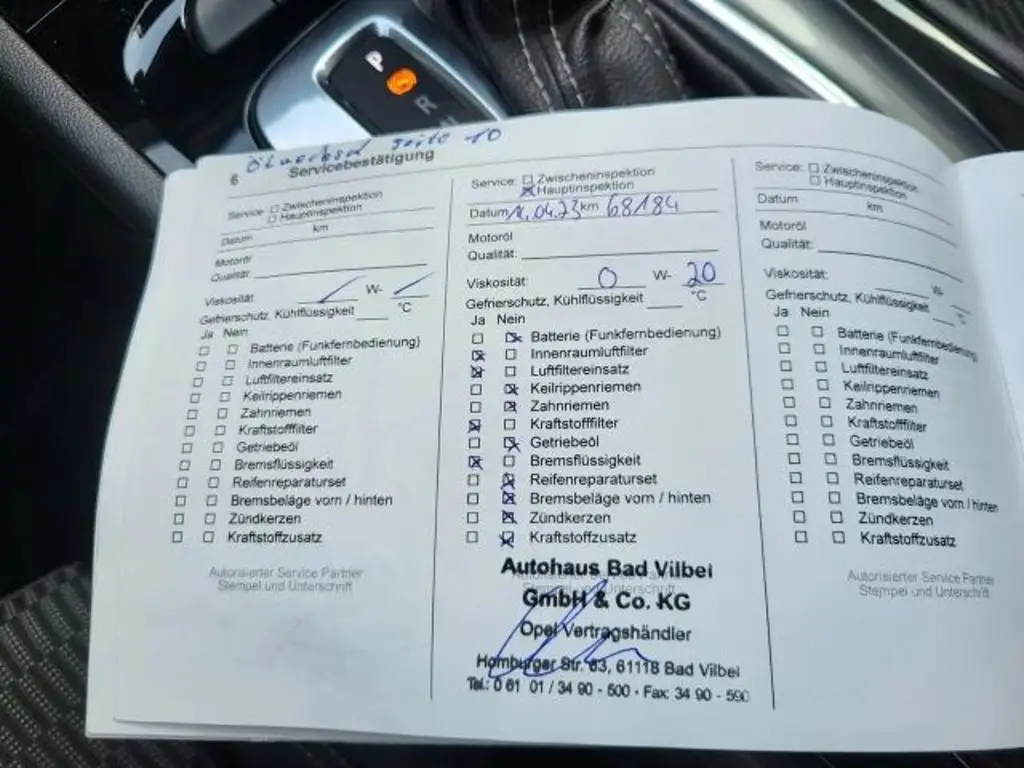 P
R
Ölwechsel Seite 10
6 Servicebestätigung
Service: Zwischeninspektion
Hauptinspektion
Datum km
Motoröl
Qualität:
Viskosität: / W- /
Gefrierschutz, Kühlflüssigkeit °C
Ja Nein
Batterie (Funkfernbedienung)
Innenraumluftfilter
Luftfiltereinsatz
Keilrippenriemen
Zahnriemen
Kraftstofffilter
Getriebeöl
Bremsflüssigkeit
Reifenreparaturset
Bremsbeläge vorn / hinten
Zündkerzen
Kraftstoffzusatz
Autorisierter Service Partner
Stempel und Unterschrift
Service: Zwischeninspektion
Hauptinspektion
Datum 04.23 km 68184
Motoröl
Qualität:
Viskosität: 0 W- 20
Gefrierschutz, Kühlflüssigkeit °C
Ja Nein
Batterie (Funkfernbedienung)
Innenraumluftfilter
Luftfiltereinsatz
Keilrippenriemen
Zahnriemen
Kraftstofffilter
Getriebeöl
Bremsflüssigkeit
Reifenreparaturset
Bremsbeläge vorn / hinten
Zündkerzen
Kraftstoffzusatz
Autorisierter Service Partner
Stempel und Unterschrift
Autohaus Bad Vilbel
GmbH & Co. KG
Opel Vertragshändler
Homburger Str. 63, 61118 Bad Vilbel
Tel.: 0 61 01 / 34 90 - 500 · Fax: 34 90 - 590
Service: Zwischeninspektion
Hauptinspektion
Datum km
Motoröl
Qualität:
Viskosität: W-
Gefrierschutz, Kühlflüssigkeit °C
Ja Nein
Batterie (Funkfernbedienung)
Innenraumluftfilter
Luftfiltereinsatz
Keilrippenriemen
Zahnriemen
Kraftstofffilter
Getriebeöl
Bremsflüssigkeit
Reifenreparaturset
Bremsbeläge vorn / hinten
Zündkerzen
Kraftstoffzusatz
Autorisierter Service Partner
Stempel und Unterschrift